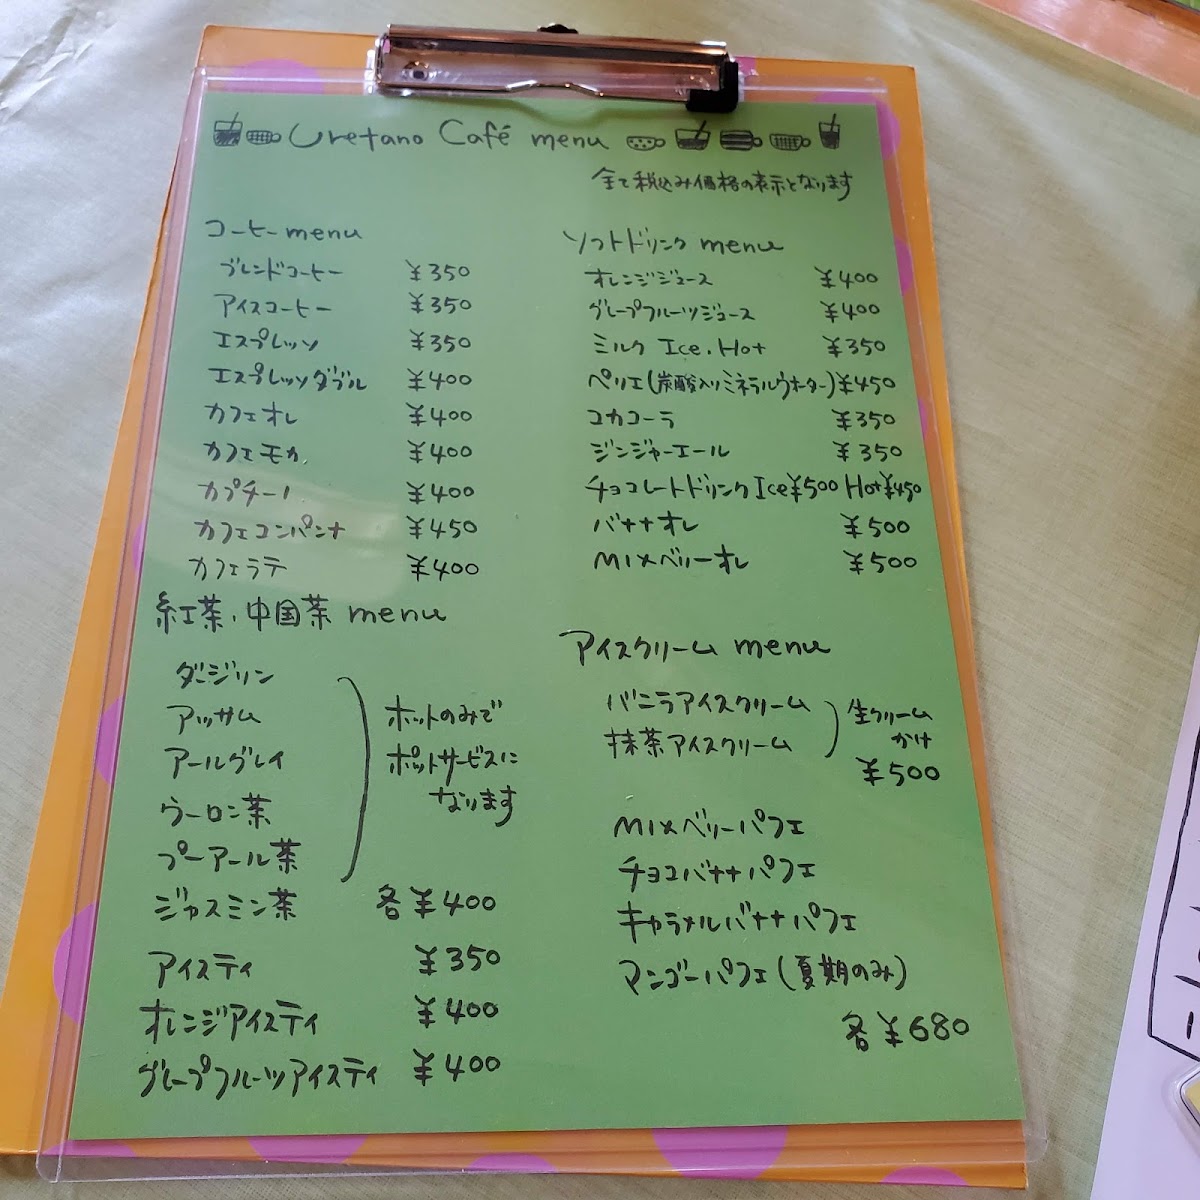 Uretano Café menu
全て税込み価格の表示となります
コーヒーmenu
ブレンドコーヒー ¥350
アイスコーヒー ¥350
エスプレッソ ¥350
エスプレッソダブル ¥400
カフェオレ ¥400
カフェモカ ¥400
カプチーノ ¥400
カフェコンパンナ ¥450
カフェラテ ¥400
紅茶・中国茶 menu
ダージリン
アッサム
アールグレイ
ウーロン茶
プーアール茶
ジャスミン茶 各¥400
ホットのみで
ポットサービスに
なります
アイスティ ¥350
オレンジアイスティ ¥400
グレープフルーツアイスティ ¥400
ソフトドリンク menu
オレンジジュース ¥400
グレープフルーツジュース ¥400
ミルク Ice.Hot ¥350
ペリエ(炭酸入りミネラルウォーター)¥450
コカコーラ ¥350
ジンジャーエール ¥350
チョコレートドリンク Ice¥500 Hot¥450
バナナオレ ¥500
MIXベリーオレ ¥500
アイスクリーム menu
バニラアイスクリーム
抹茶アイスクリーム
生クリーム
かけ
¥500
MIXベリーパフェ
チョコバナナパフェ
キャラメルバナナパフェ
マンゴーパフェ(夏期のみ)
各¥680